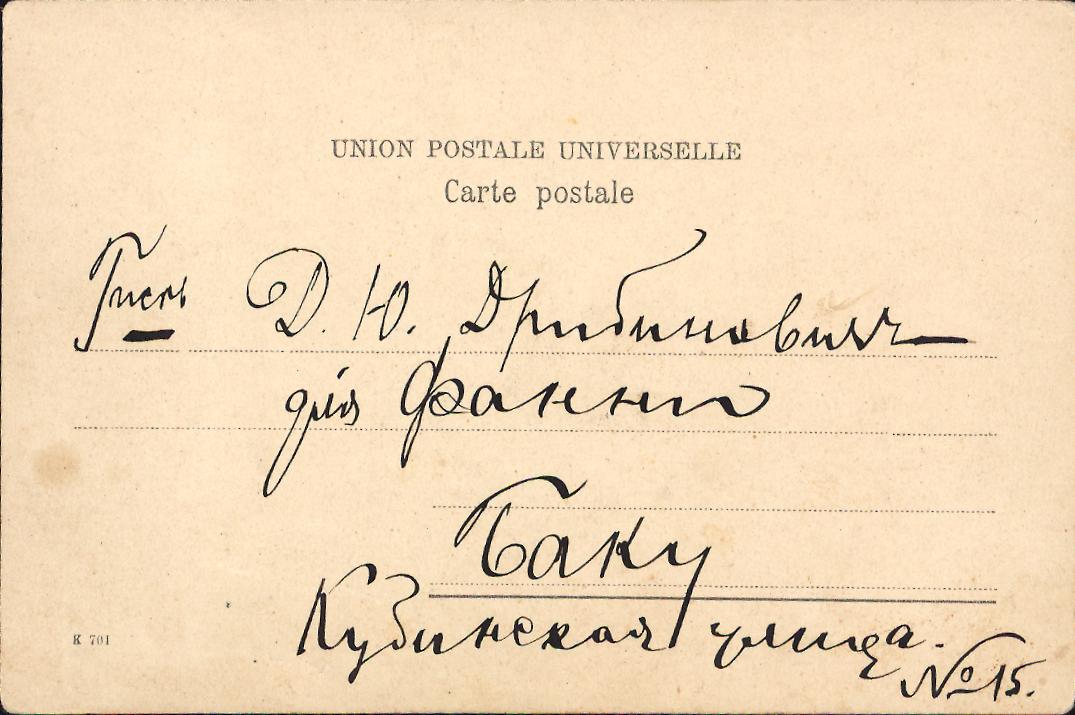 UNION POSTALE UNIVERSELLE
Carte postale
Д. Ю. Дрибиновичъ
для Фанни
Баку
Кубинская улица.
№ 15.
K 701